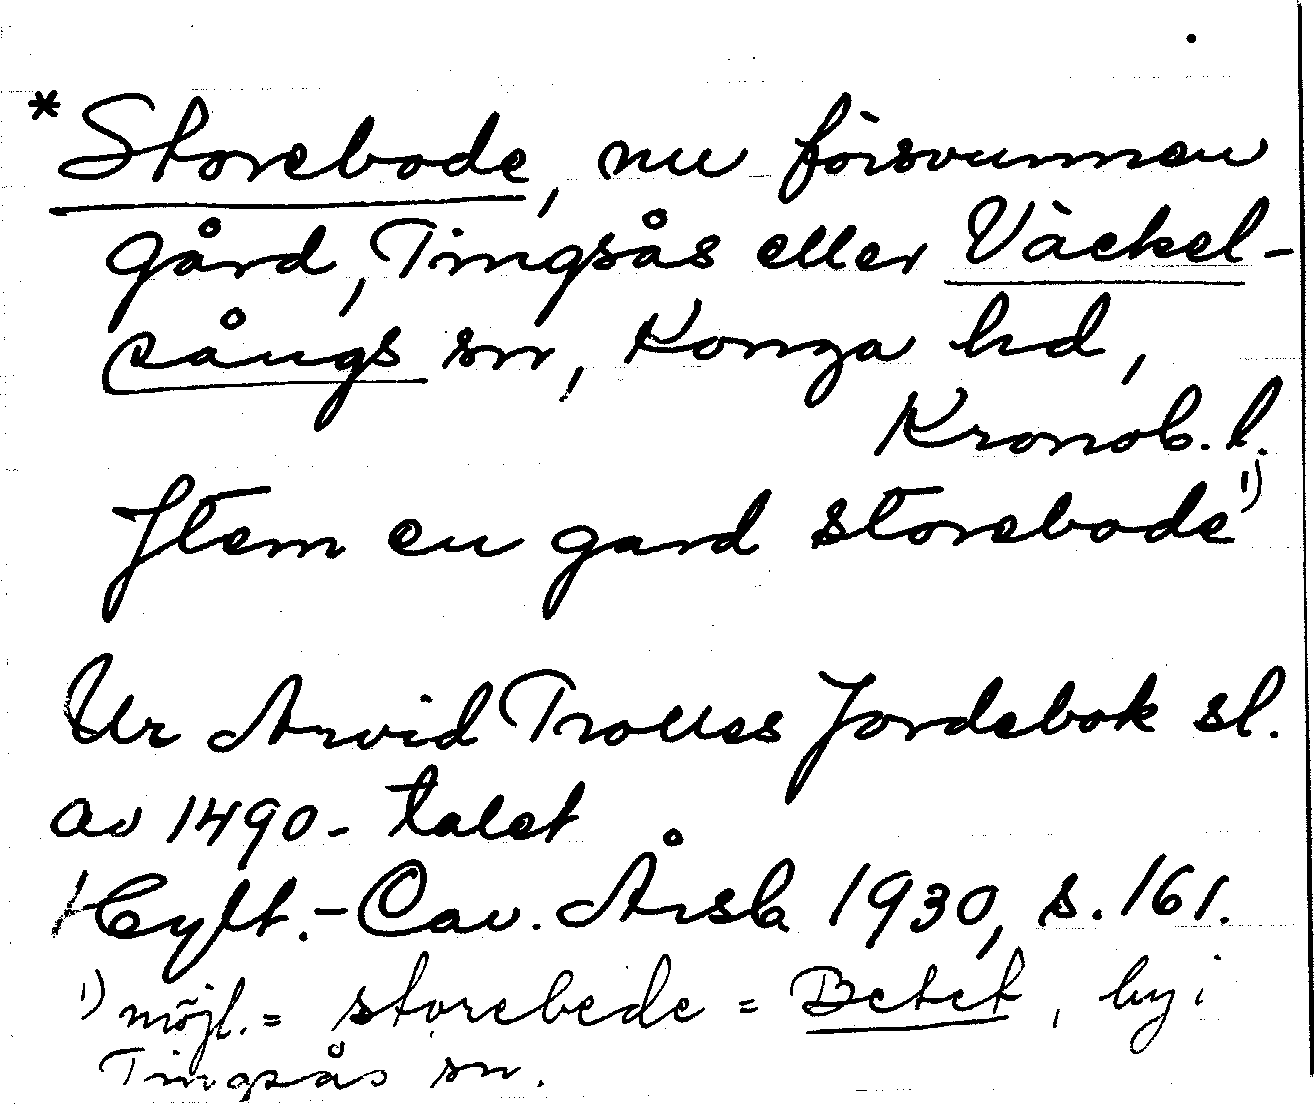 *Storebode, nu försvunnen
gård, Tingsås eller Väckel-
sångs sn, Konga hd,
Kronob. l.
Item en gard storebode 1)
Ur Arvid Trolles Jordebok sl.
av 1490-talet
Hylt.-Cav. Årsb 1930, s. 161.
1) möjl. = storebede = Betet, by i
Tingsås sn.